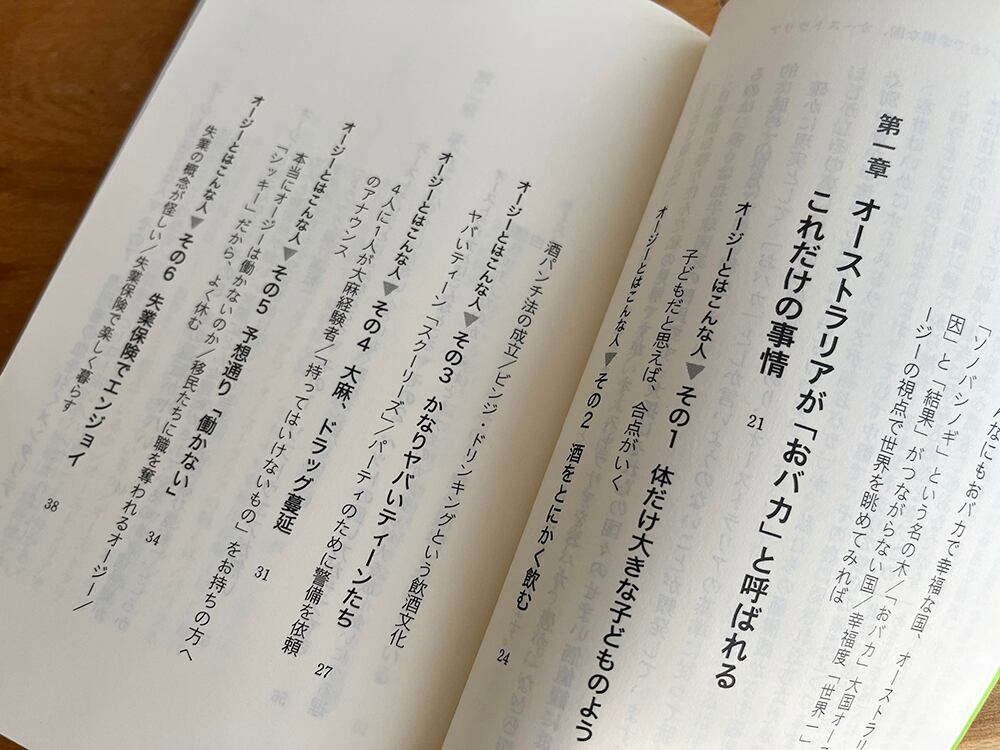 んなにもおバカで幸福な国、オーストラリ
「ソノバシノギ」という名の木／「おバカ」大国オー
因」と「結果」がつながらない国／幸福度「世界一」
ージーの視点で世界を眺めてみれば
第一章 オーストラリアが「おバカ」と呼ばれる
これだけの事情 21
オージーとはこんな人▼その1 体だけ大きな子どものよう
子どもだと思えば、合点がいく
オージーとはこんな人▼その2 酒をとにかく飲む 24
酒パンチ法の成立／ビンジ・ドリンキングという飲酒文化
オージーとはこんな人▼その3 かなりヤバいティーンたち 27
ヤバいティーン「スクーリーズ」／パーティのために警備を依頼
4人に1人が大麻経験者／「持ってはいけないもの」をお持ちの方へ
のアナウンス
オージーとはこんな人▼その4 大麻、ドラッグ蔓延 31
本当にオージーは働かないのか／移民たちに職を奪われるオージー／
「シッキー」だから、よく休む
オージーとはこんな人▼その5 予想通り「働かない」 34
失業の概念が怪しい／失業保険で楽しく暮らす
オージーとはこんな人▼その6 失業保険でエンジョイ 38